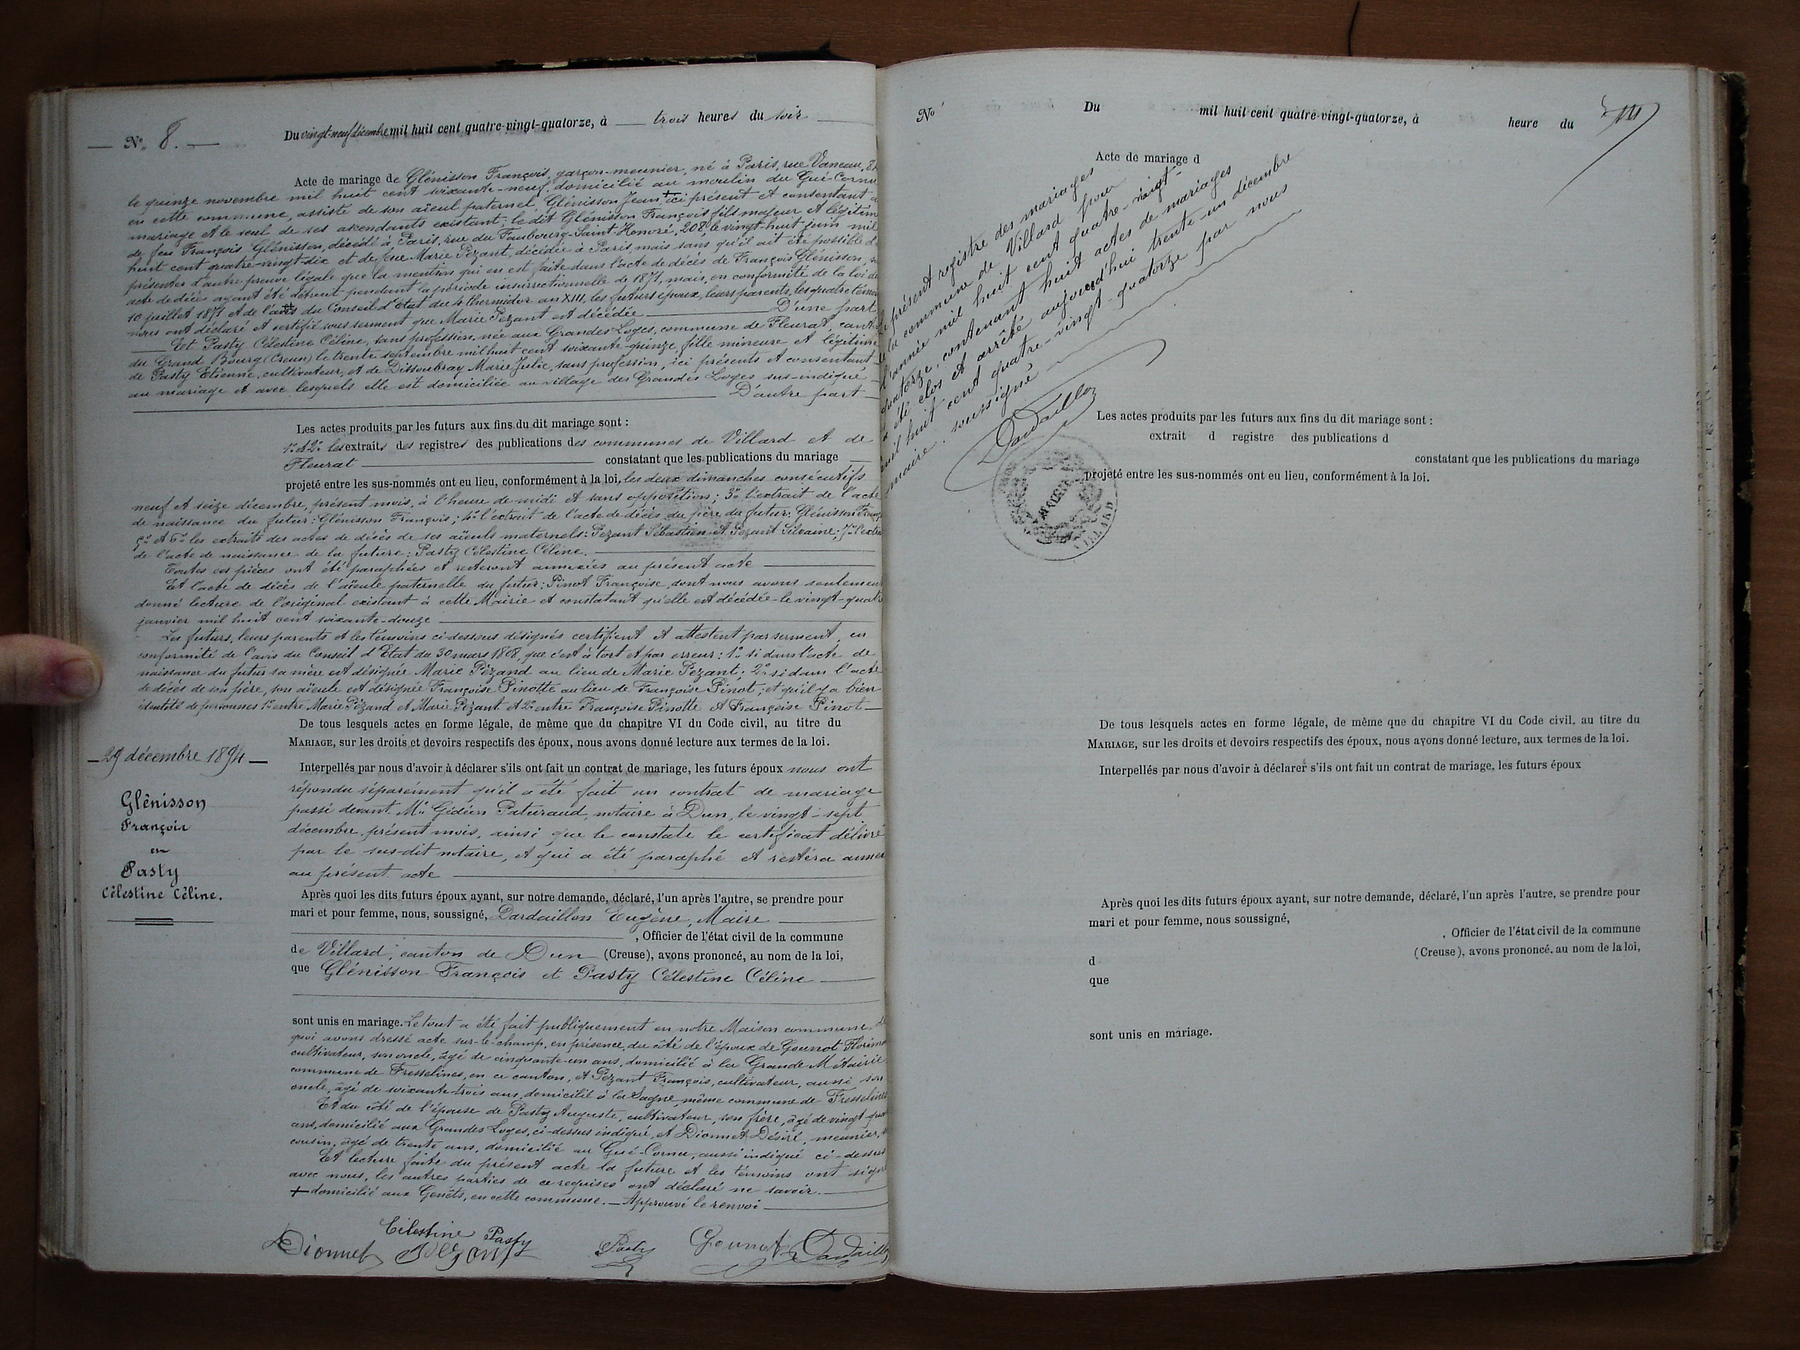 N° 8.
Du vingt-neuf décembre mil huit cent quatre-vingt-quatorze, à trois heures du soir
Acte de mariage de Glénisson François, garçon-meunier, né à Paris, rue Vaneau,
le quinze novembre mil huit cent soixante-neuf, domicilié au moulin du Gué-Cornu
en cette commune, assisté de son aïeul paternel Glénisson Jean + ici présent et consentant au
mariage et le seul de ses ascendants existant; le dit Glénisson François fils majeur et légitime
de feu François Glénisson, décédé à Paris, rue du Faubourg-Saint-Honoré, 208, le vingt-huit juin mil
huit cent quatre-vingt-dix et de feue Marie Pezant, décédée à Paris mais sans qu'il ait été possible de
présenter d'autre preuve légale que la mention qui en est faite dans l'acte de décès de François Glénisson,
acte de décès ayant été détruit pendant la période insurrectionnelle de 1871, mais, en conformité de la loi du
10 juillet 1871 et de l'avis du Conseil d'Etat du 4 thermidor an XIII, les futurs époux, leurs parents, les quatre témoins
nous ont déclaré et certifié sous serment que Marie Pezant est décédée D'une part
Et Pasty Célestine Céline, sans profession, née aux Grandes Loges, commune de Fleurat, canton
du Grand Bourg (Creuse) le trente septembre mil huit cent soixante-quinze, fille mineure et légitime
de Pasty Etienne, cultivateur, et de Dissoubray Marie Julie, sans profession, ici présents et consentant
au mariage et avec lesquels elle est domiciliée au village des Grandes Loges sus-indiqué
D'autre part
Les actes produits par les futurs aux fins du dit mariage sont :
1° & 2° les extraits des registres des publications des communes de Villard et de
Fleurat constatant que les publications du mariage
projeté entre les sus-nommés ont eu lieu, conformément à la loi, les deux dimanches consécutifs
neuf et seize décembre, présent mois, à l'heure de midi et sans opposition; 3° l'extrait de l'acte
de naissance du futur: Glénisson François; 4° l'extrait de l'acte de décès du père du futur: Glénisson François
5° et 6° les extraits des actes de décès de ses aïeuls maternels: Pezant Sébastien et Pezant Silvaine; 7° l'extrait
de l'acte de naissance de la future: Pasty Célestine Céline.
Toutes ces pièces ont été paraphées et resteront annexées au présent acte
Et l'acte de décès de l'aïeule paternelle du futur: Pinot Françoise, dont nous avons seulement
donné lecture de l'original existant à cette Mairie et constatant qu'elle est décédée le vingt-quatre
janvier mil huit cent soixante-douze
Les futurs, leurs parents et les témoins ci-dessous désignés certifient et attestent par serment, en
conformité de l'avis du Conseil d'Etat du 30 mars 1808, que c'est à tort et par erreur: 1° si dans l'acte de
naissance du futur sa mère est désignée Marie Pézand au lieu de Marie Pezant; 2° si dans l'acte
de décès de son père, son aïeule est désignée Françoise Pinotte au lieu de Françoise Pinot; et qu'il y a bien
identité de personnes 1° entre Marie Pézand et Marie Pezant et 2° entre Françoise Pinotte et Françoise Pinot
De tous lesquels actes en forme légale, de même que du chapitre VI du Code civil, au titre du
MARIAGE, sur les droits et devoirs respectifs des époux, nous avons donné lecture aux termes de la loi.
29 décembre 1894
Glénisson
François
en
Pasty
Célestine Céline.
Interpellés par nous d'avoir à déclarer s'ils ont fait un contrat de mariage, les futurs époux nous ont
répondu séparément qu'il a été fait un contrat de mariage
passé devant M° Gédéon Paturaud, notaire à Dun, le vingt-sept
décembre, présent mois, ainsi que le constate le certificat délivré
par le sus-dit notaire, et qui a été paraphé et restera annexé
au présent acte
Après quoi les dits futurs époux ayant, sur notre demande, déclaré, l'un après l'autre, se prendre pour
mari et pour femme, nous, soussigné, Dardaillon Eugène, Maire
, Officier de l'état civil de la commune
de Villard, canton de Dun (Creuse), avons prononcé, au nom de la loi,
que Glénisson François et Pasty Célestine Céline
sont unis en mariage. Le tout a été fait publiquement en notre Maison commune, de
quoi avons dressé acte sur-le-champ, en présence, du côté de l'époux de Gounot
cultivateur, son oncle, âgé de cinquante-un ans, domicilié à la Grande Métairie
commune de Fresselines, en ce canton, et Pezant François, cultivateur, aussi son
oncle, âgé de soixante-trois ans, domicilié à la Sagne, même commune de Fresselines
Et du côté de l'épouse de Pasty Auguste, cultivateur, son frère, âgé de vingt-quatre
ans, domicilié aux Grandes Loges, ci-dessus indiqué, et Dionnet Désiré, meunier, son
cousin, âgé de trente ans, domicilié au Gué-Cornu, aussi indiqué ci-dessus
Et lecture faite du présent acte la future et les témoins ont signé
avec nous, les autres parties de ce requises ont déclaré ne savoir.
+ domicilié aux Genêts, en cette commune. — Approuvé le renvoi
Célestine Pasty
Dionnet Pezant Pasty Gounot Dardaillon
N° Du mil huit cent quatre-vingt-quatorze, à heure du
Acte de mariage d
Le présent registre des mariages
de la commune de Villard pour
l'année mil huit cent quatre-vingt-
quatorze, contenant huit actes de mariages
a été clos et arrêté aujourd'hui trente-un décembre
mil huit cent quatre-vingt-quatorze par nous
maire soussigné
Dardaillon
MAIRIE
VILLARD
Les actes produits par les futurs aux fins du dit mariage sont :
extrait d registre des publications d
constatant que les publications du mariage
projeté entre les sus-nommés ont eu lieu, conformément à la loi.
De tous lesquels actes en forme légale, de même que du chapitre VI du Code civil, au titre du
MARIAGE, sur les droits et devoirs respectifs des époux, nous avons donné lecture, aux termes de la loi.
Interpellés par nous d'avoir à déclarer s'ils ont fait un contrat de mariage, les futurs époux
Après quoi les dits futurs époux ayant, sur notre demande, déclaré, l'un après l'autre, se prendre pour
mari et pour femme, nous soussigné,
, Officier de l'état civil de la commune
d (Creuse), avons prononcé, au nom de la loi,
que
sont unis en mariage.